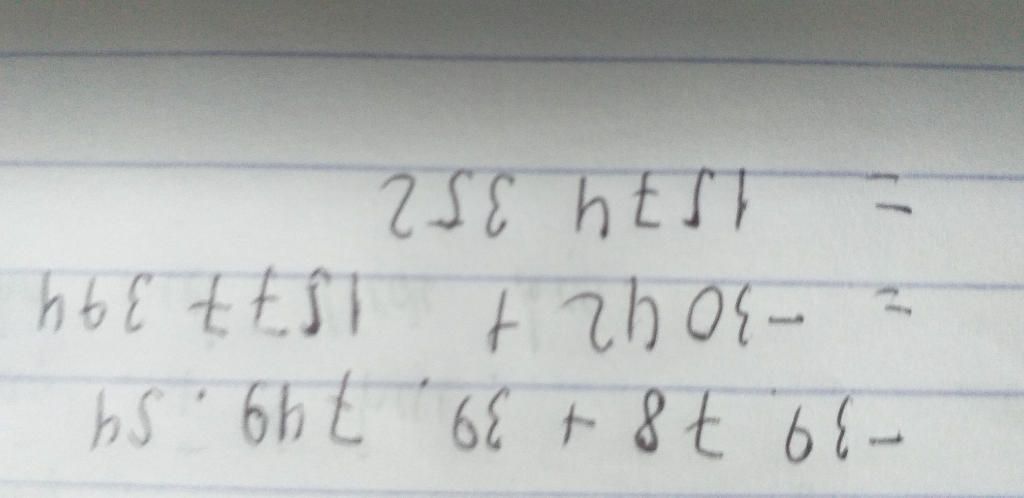 -39 . 78 + 39 . 749 . 54
= -3042 + 1577 394
= 1574 352